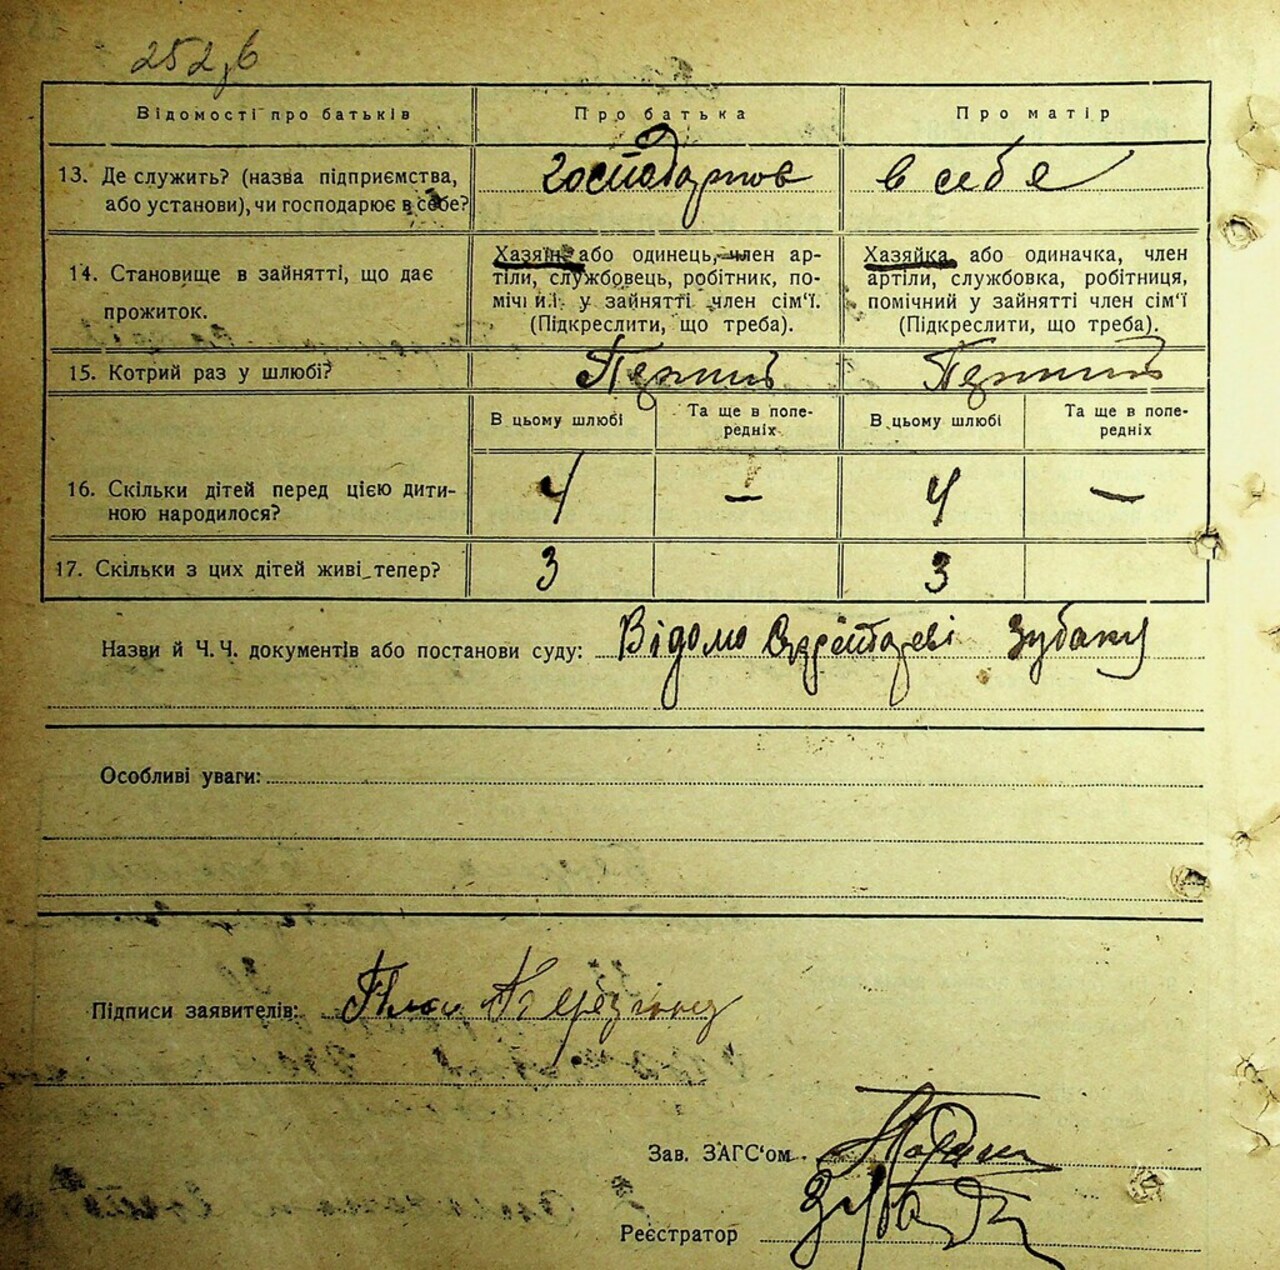 252,6
Відомості про батьків
Про батька
Про матір
13. Де служить? (назва підприємства,
або установи), чи господарює в себе?
в себе
14. Становище в зайнятті, що дає
прожиток.
Хазяїн або одинець, член ар-
тіли, службовець, робітник, по-
мічний у зайнятті член сім'ї.
(Підкреслити, що треба).
Хазяйка або одиначка, член
артіли, службовка, робітниця,
помічний у зайнятті член сім'ї
(Підкреслити, що треба).
15. Котрий раз у шлюбі?
В цьому шлюбі
Та ще в попе-
редніх
В цьому шлюбі
Та ще в попе-
редніх
16. Скільки дітей перед цією дити-
ною народилося?
4
—
4
—
17. Скільки з цих дітей живі тепер?
3
3
Назви й Ч. Ч. документів або постанови суду: Відомо Зубаню
Особливі уваги:
Підписи заявителів:
Зав. ЗАГС'ом
Реєстратор